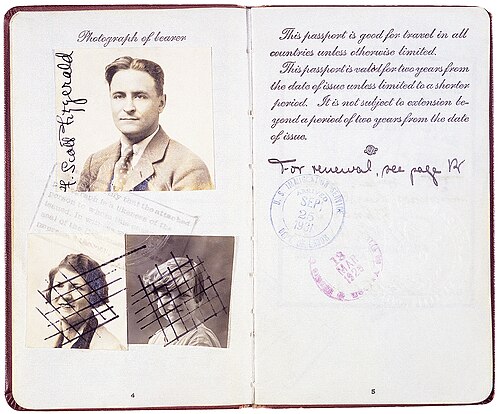 Photograph of bearer
F. Scott Fitzgerald
4
This passport is good for travel in all
countries unless otherwise limited.
This passport is valid for two years from
the date of issue unless limited to a shorter
period. It is not subject to extension be-
yond a period of two years from the date
of issue.
For renewal, see page 12
SEP
25
1931
13
MAR
5